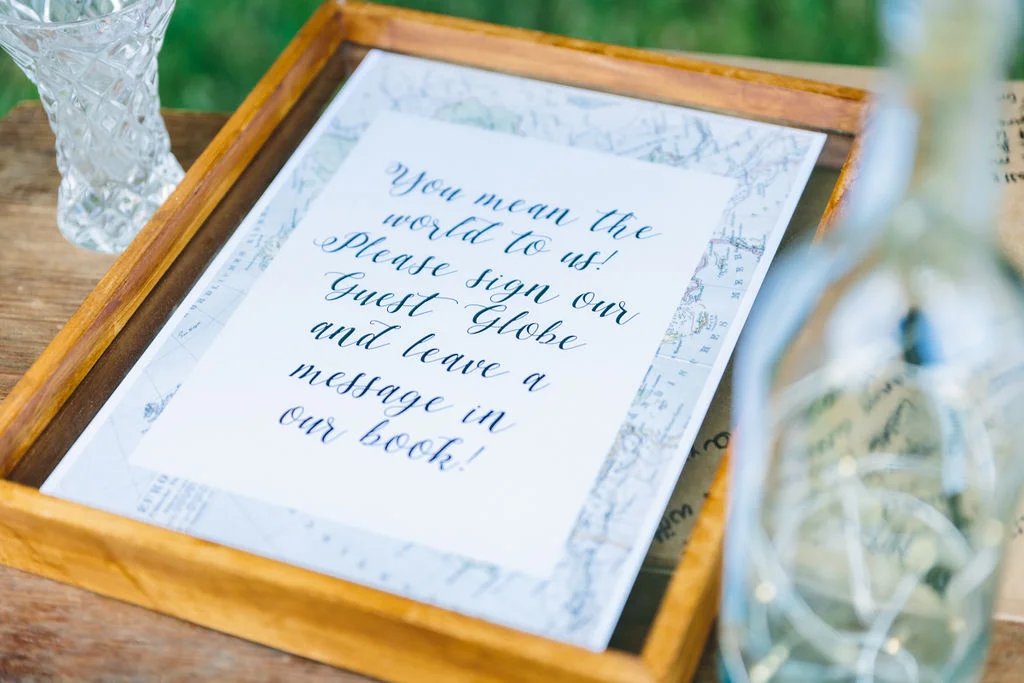 You mean the
world to us!
Please sign our
Guest Globe
and leave a
message in
our book!